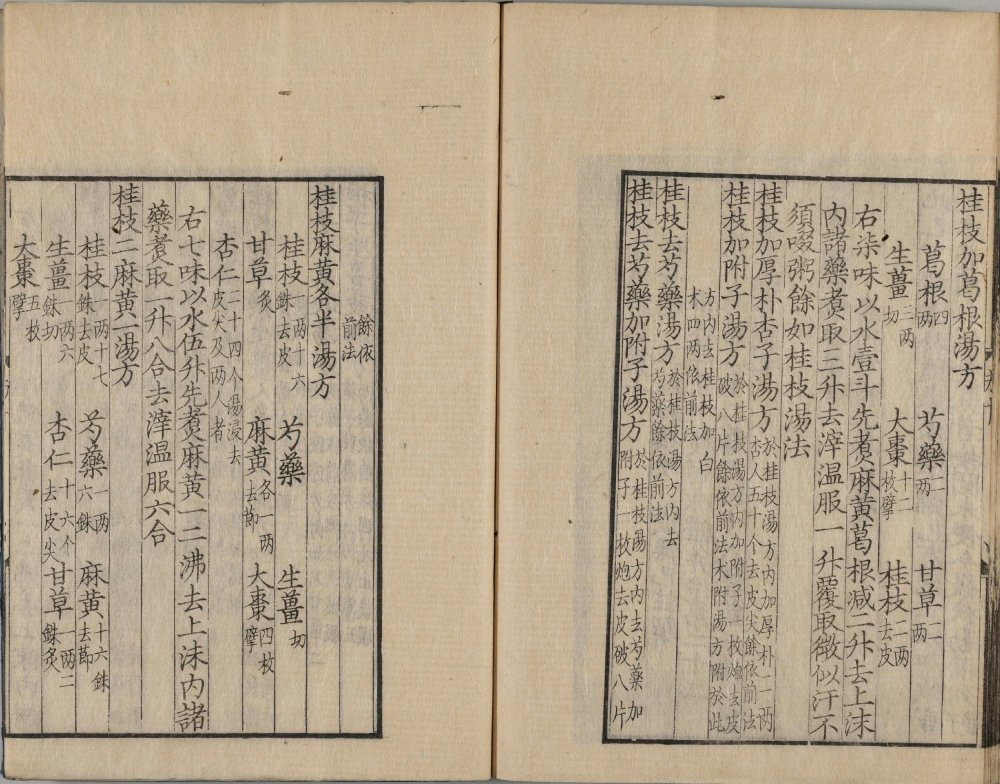 桂枝加葛根湯方
葛根四兩　芍藥二兩　甘草二兩
生薑二兩切　大棗十二枚擘　桂枝二兩去皮
右柒味以水壹斗先煮麻黃葛根減二升去上沫
內諸藥煮取三升去滓温服一升覆取微似汗不
須啜粥餘如桂枝湯法
桂枝加厚朴杏子湯方於桂枝湯方內加厚朴二兩杏人五十个去皮尖餘依前法
桂枝加附子湯方於桂枝湯方內加附子一枚炮去皮破八片餘依前法术附湯方附於此
方內去桂枝加白术四兩依前法
桂枝去芍藥湯方於桂枝湯方內去芍藥餘依前法
桂枝去芍藥加附子湯方於桂枝湯方內去芍藥加附子一枚炮去皮破八片
餘依前法
桂枝麻黃各半湯方
桂枝一兩十六銖去皮　芍藥　生薑切
甘草炙　麻黃各一兩去節　大棗四枚擘
杏仁二十四个湯浸去皮尖及兩人者
右七味以水伍升先煮麻黃一二沸去上沫內諸
藥煮取一升八合去滓温服六合
桂枝二麻黃一湯方
桂枝一兩十七銖去皮　芍藥一兩六銖　麻黃十六銖去節
生薑一兩六銖切　杏仁十六个去皮尖　甘草一兩二銖炙
大棗五枚擘